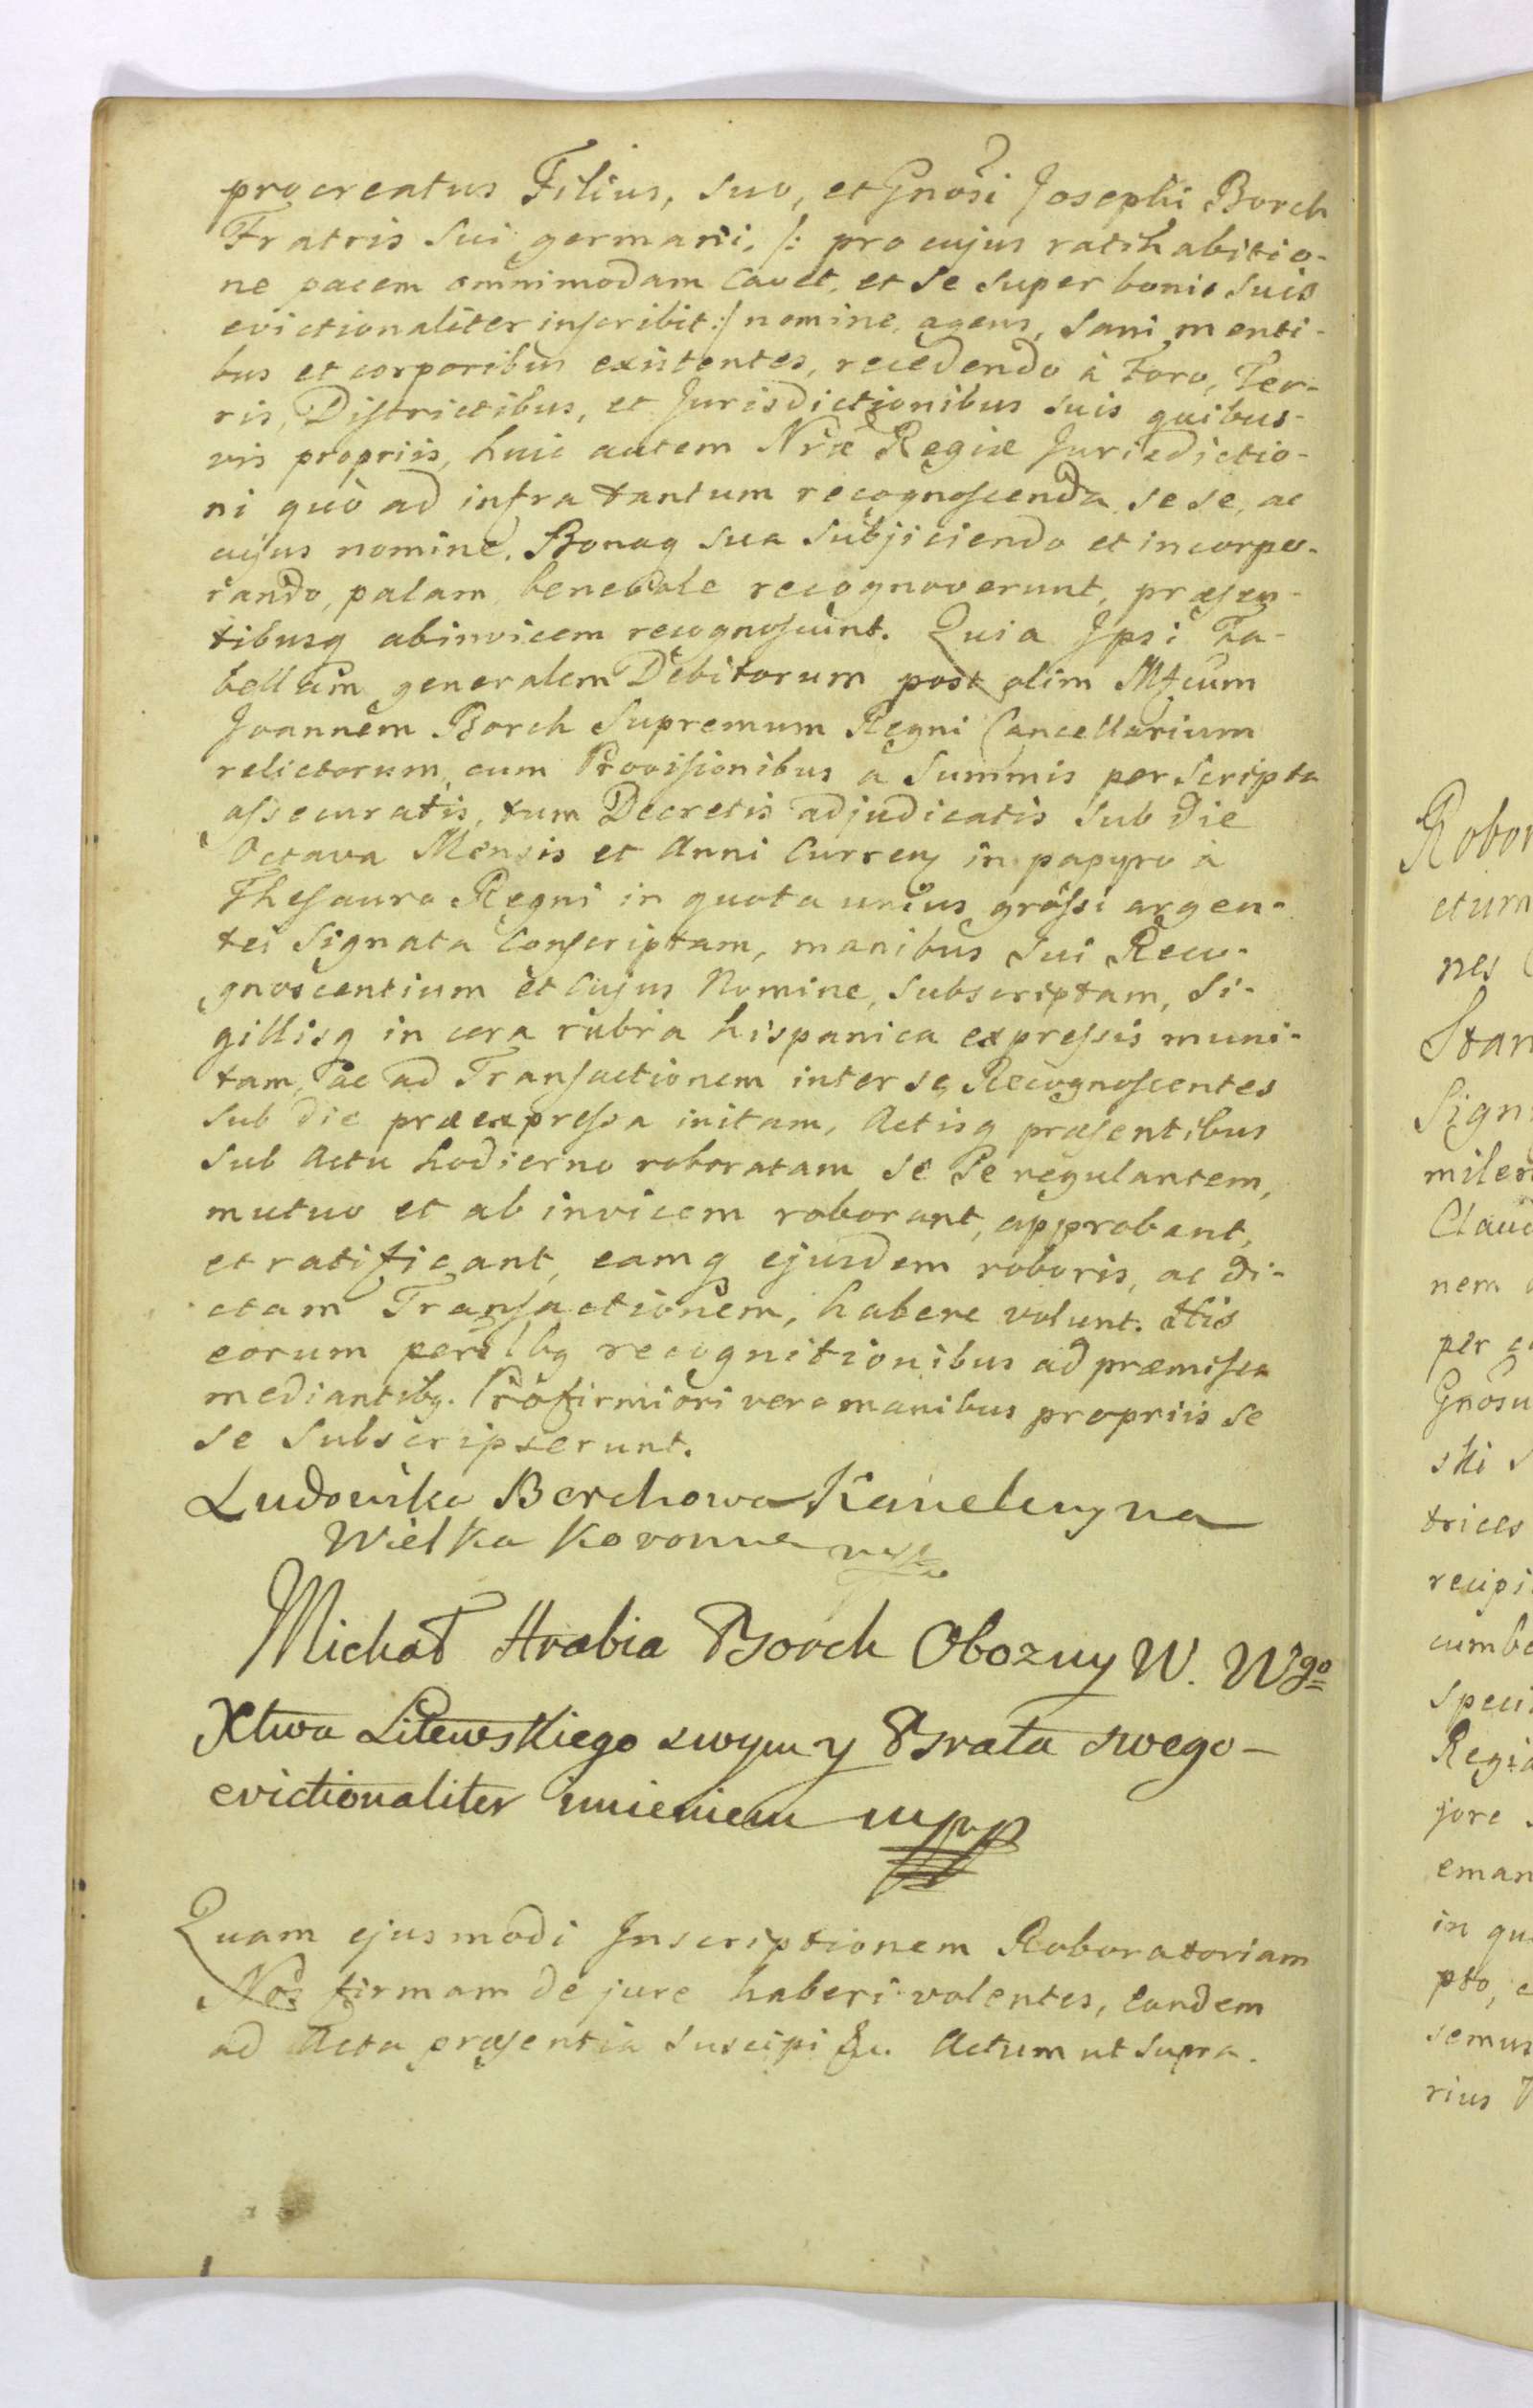 procreatus Filius, suo, et Gnosi Josephi Borch
Fratris sui germani, /: pro cujus ratihabitio-
ne pacem omnimodam cavet, et se super bonis suis
evictionaliter inscribit :/ nomine, agens, sani menti-
bus et corporibus existentes, recedendo à Foro, Ter-
ris, Districtibus, et Jurisdictionibus suis quibus-
vis propriis, huic autem Nræ Regiæ Jurisdictio-
ni quò ad infra tantum recognoscenda se se, ac
cujus nomine, Bonaq sua subjiciendo et incorpo-
rando, palam, benevole recognoverunt, præsen-
tibusq abinvicem recognoscunt. Quia Jpsi Ta-
bellam generalem Debitorum post olim Mfcum
Joannem Borch Supremum Regni Cancellarium
relictorum, cum Provisionibus à Summis per scripta
assecuratis, tum Decretis adjudicatis sub die
Octava Mensis et Anni Curren in papyro à
Thesauro Regni in quota unius grossi argen-
tei signata Conscriptam, manibus sui Reco-
gnoscentium et Cujus Nomine, subscriptam, si-
gillisq in cera rubra hispanica expressis muni-
tam, ac ad Transactionem inter se Recognoscentes
sub die præexpressa initam, Actisq præsentibus
sub Actu hodierno roboratam se se regulantem,
mutuo et ab invicem roborant, approbant,
et ratificant, eamq ejusdem roboris, ac di-
ctam Transactionem, habere volunt. His
eorum recognitionibus ad præmissa
mediantibq. Pro firmiori vero manibus propriis se
se subscripserunt.
Ludowika Borchowa Kanclerzyna
Wielka Koronna mp
Michał Hrabia Borch Obozny W. Wgo
Xtwa Litewskiego swym y Brata swego-
evictionaliter imieniem mpp
Quam ejusmodi Jnscriptionem Roboratoriam
Nos firmam de jure haberi volentes, eandem
ad Acta præsentia suscipi &c. Actum ut supra.
Robor
ctum
nes
Stan
Sign
milem
Claud
nem
per
Gnosu
ski
trices
recipi
cumbe
speci
Regia
jore
eman
in qu
pto, e
semus
rius